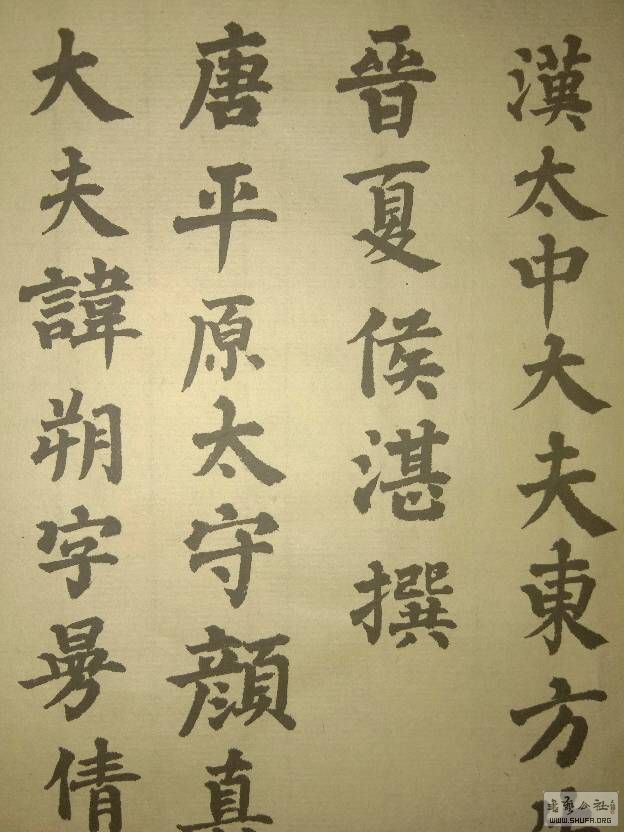 漢太中大夫東方
晉夏侯湛撰
唐平原太守顏真
大夫諱朔字曼倩
WWW.SHUFA.ORG